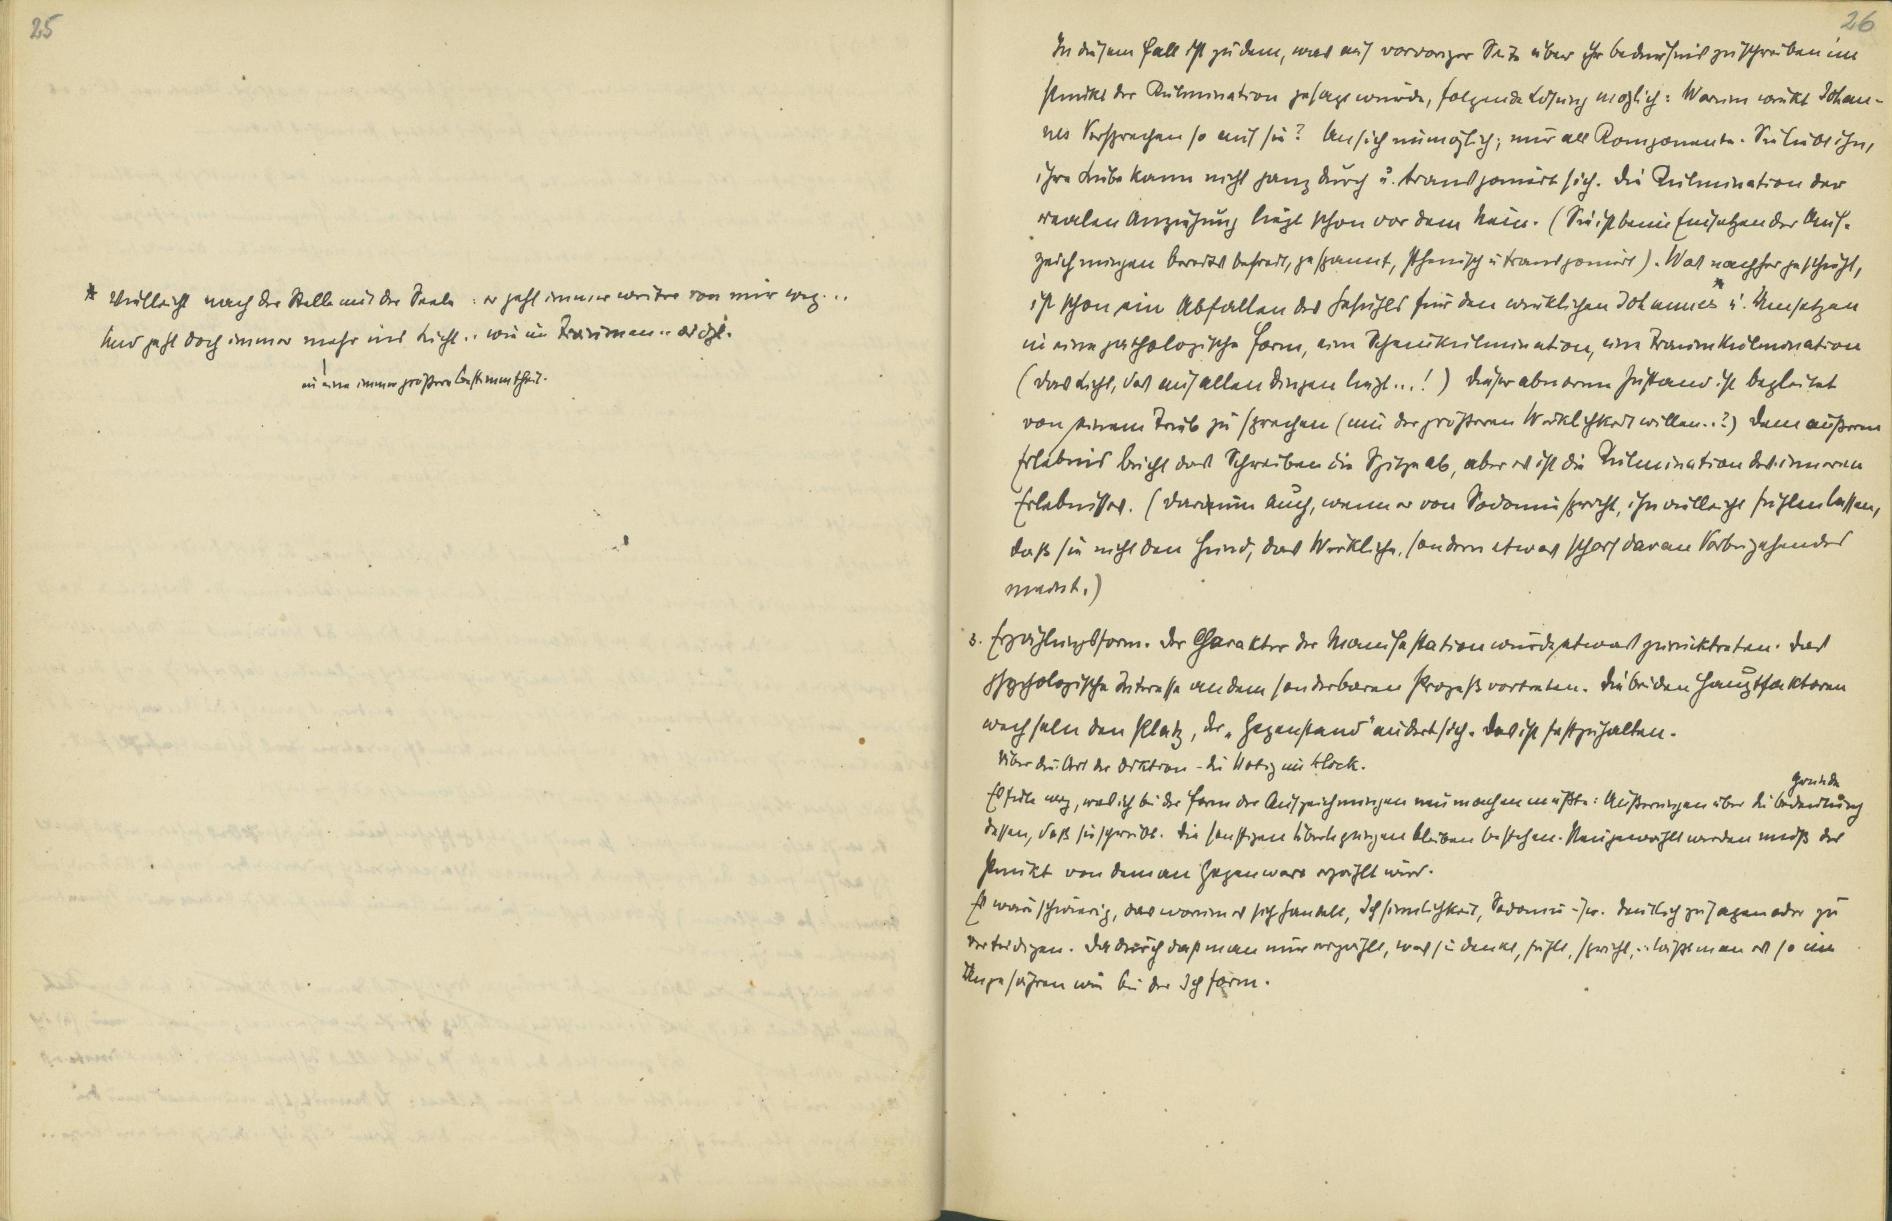 25
* Vielleicht nach der Stelle mit der Seele: er geht immer weiter von mir weg...
Und geht doch immer mehr ins Licht.. wie im Träumen..
in eine immer größere Bestimmtheit.
26
In diesem Fall ist zu dem, was auf vorvoriger Seite über ihr Bedürfnis zu schreiben im
Punkt der Kulmination gesagt wurde, folgende Lösung möglich: Warum wirkt Johan-
nes Versprechen so auf sie? An sich unmöglich; nur als Komponente. Sie liebt ihn,
ihre Liebe kann nicht ganz durch u. transponiert sich. Die Kulmination der
realen Anziehung liegt schon vor dem Nein. (Sie ist beim Einsetzen der Auf-
zeichnungen bereits befreit, gespannt, sthenisch u transponiert). Was nachher geschieht,
ist schon ein Abfallen des Gefühls für den wirklichen Johannes* u. Umsetzen
in eine pathologische Form, eine Scheinkulmination, eine Traumkulmination
(das Licht, das auf allen Dingen liegt...!) Dieser abnorme Zustand ist begleitet
von einem Trieb zu sprechen (um der größeren Wirklichkeit willen..?) Dem äußeren
Erlebnis bricht das Schreiben die Spitze ab, aber es ist die Kulmination des inneren
Erlebnisses. (Darum auch, wenn er von Sodomie spricht, ihn vielleicht fühlen lassen,
daß sie nicht den Hund, das Wirkliche, sondern etwas scharf daran Vorbeigehendes
meint.)
3. Erzählungsform. Der Charakter der Manifestation würde etwas zurücktreten. Das
psychologische Interesse an dem sonderbaren Prozeß vortreten. Die beiden Hauptfaktoren
wechseln den Platz, der „Gegenstand" ändert sich. Das ist festzuhalten.
Über die Art der Diktion - die Notiz im Block.
Es fiele weg, was ich bei der Form der Aufzeichnungen neu machen müßte: Äußerungen über die Bedeutung
Gründe
dessen, daß sie schreibt. Die sonstigen Überlegungen bleiben bestehen. Neu gewählt werden muß der
Punkt von dem an Gegenwart erzählt wird.
Es wäre schwierig, das worum es sich handelt, Ichsinnlichkeit, Sodomie - zu deutlich zu sagen oder zu
verteidigen. Dadurch daß man nur erzählt, was sie denkt, fühlt, spricht,.. läßt man es so im
Ungefähren wie bei der Ichform.